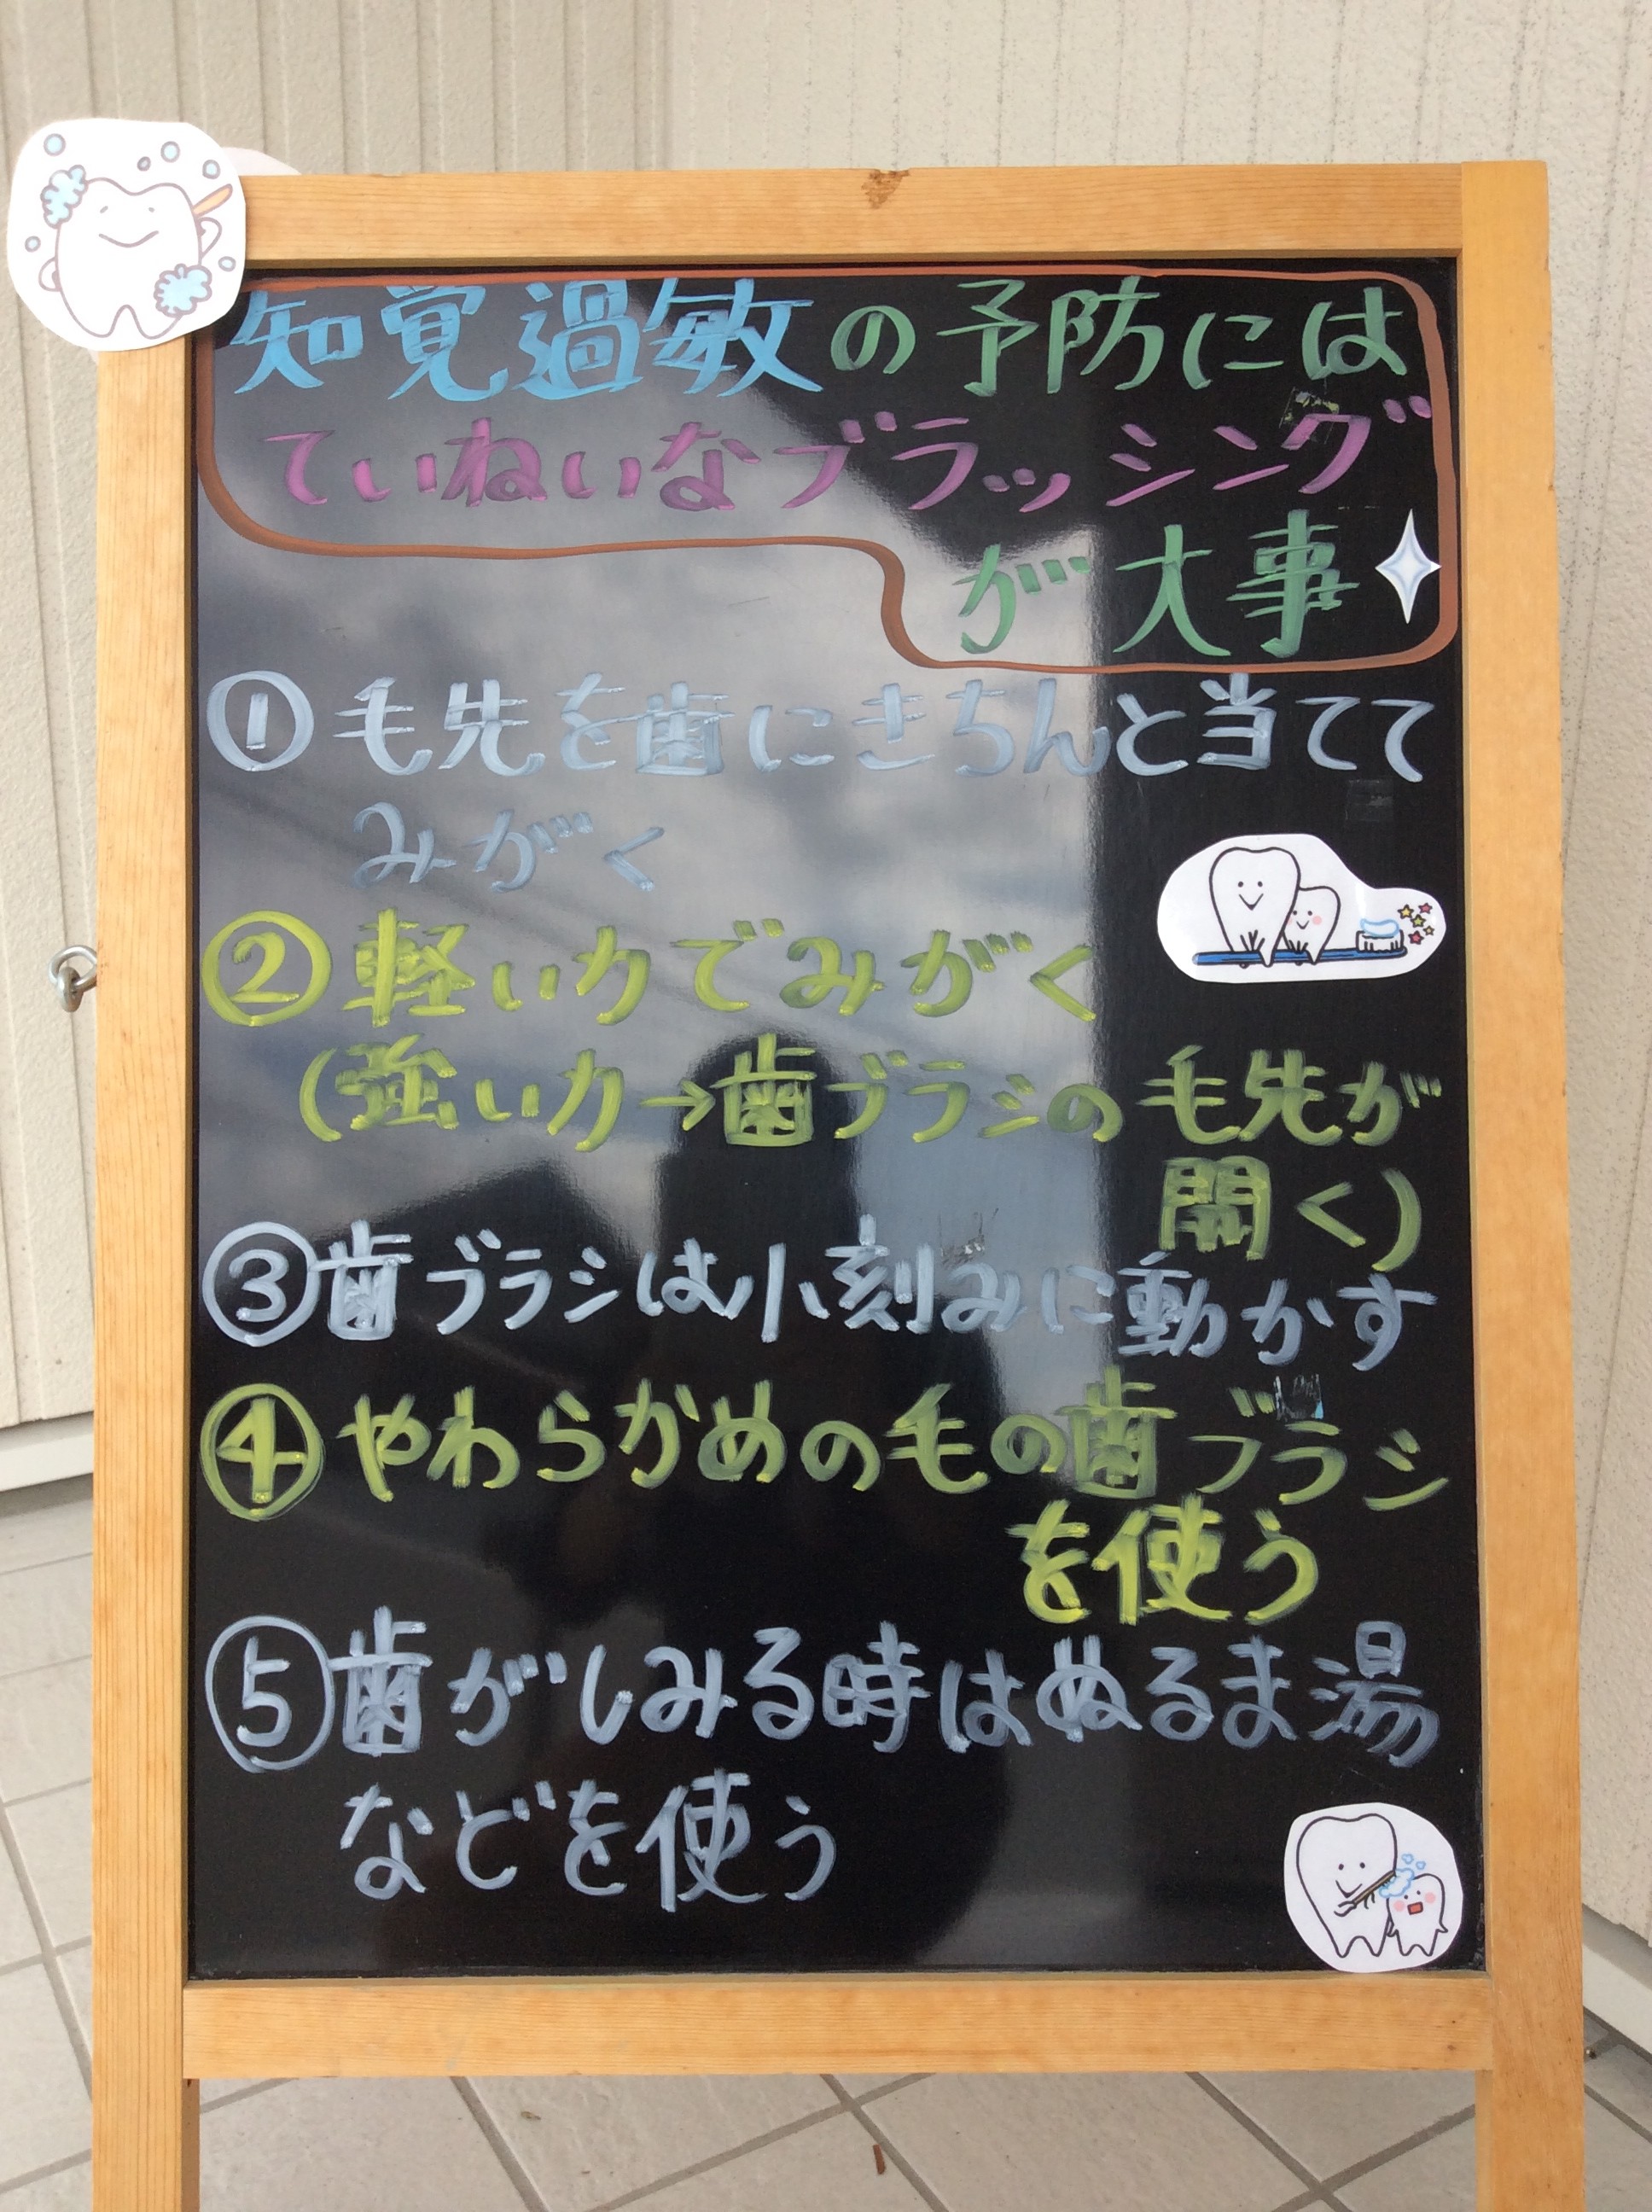 知覚過敏の予防には
ていねいなブラッシング
が大事
①毛先を歯にきちんと当てて
みがく
②軽い力でみがく
(強い力→歯ブラシの毛先が
開く)
③歯ブラシは小刻みに動かす
④やわらかめの毛の歯ブラシ
を使う
⑤歯がしみる時はぬるま湯
などを使う